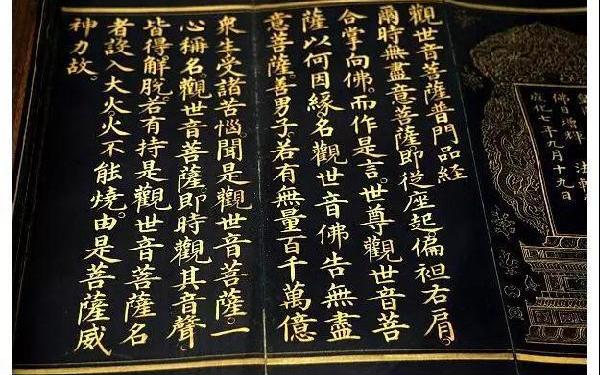 佛日增輝 法輪
成化七年九月十九日
觀世音菩薩普門品經
爾時無盡意菩薩即從座起偏袒右肩。
合掌向佛。而作是言。世尊觀世音菩
薩以何因緣。名觀世音佛告無盡
意菩薩。善男子。若有無量百千萬億
衆生受諸苦惱。聞是觀世音菩薩。一
心稱名。觀世音菩薩。即時觀其音聲
皆得解脫。若有持是觀世音菩薩名
者設入大火火不能燒。由是菩薩威
神力故。